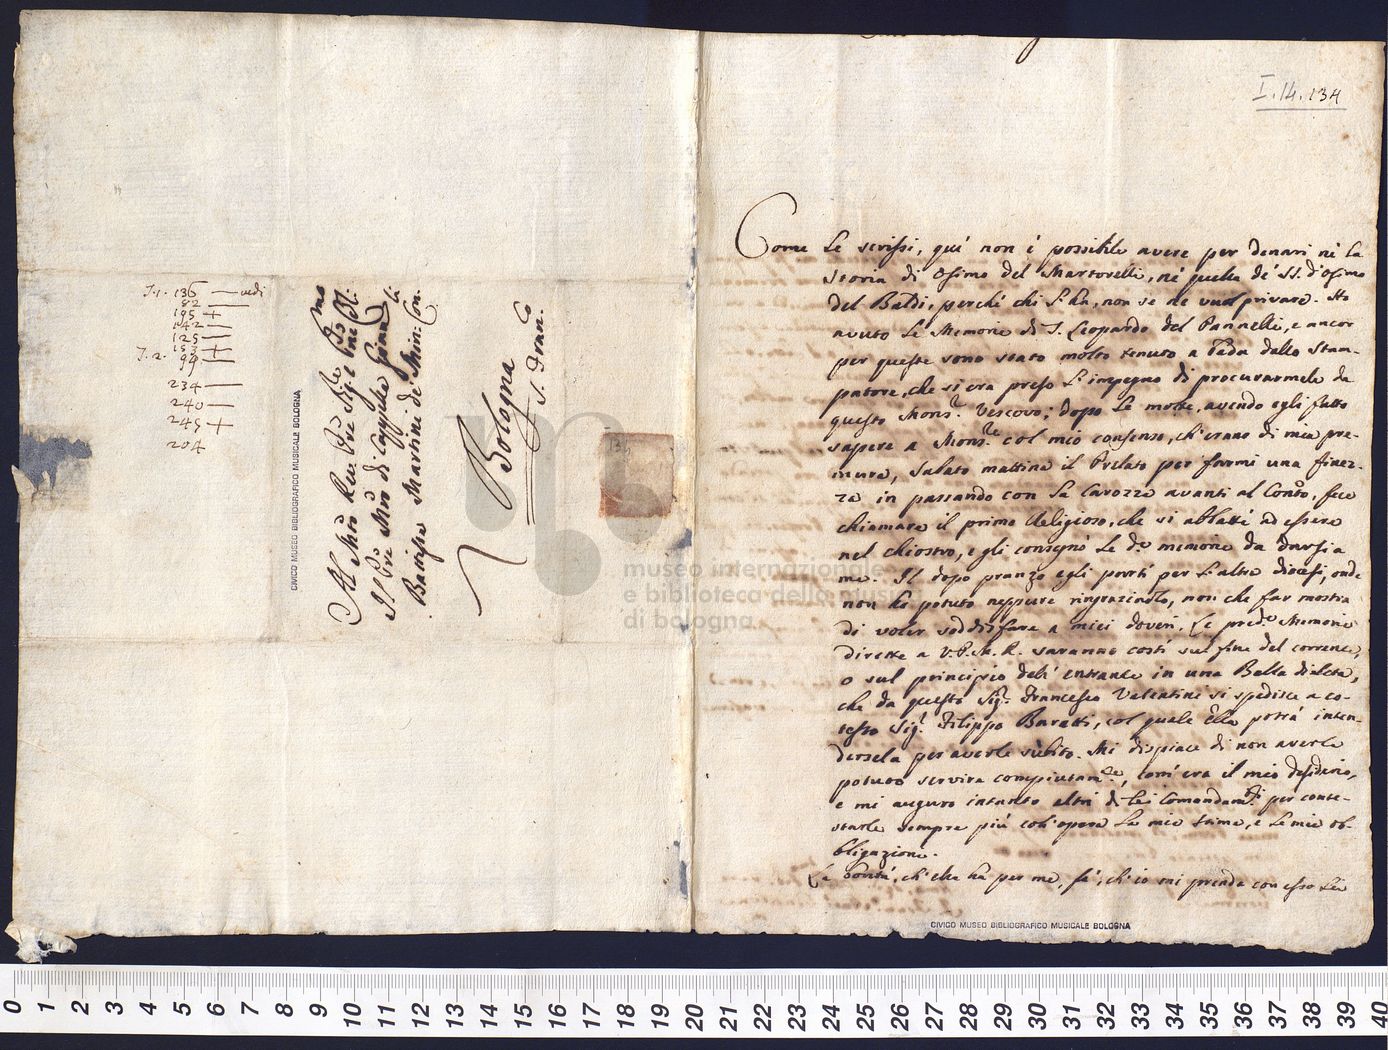 I.14.134
Come Le scrissi, quì non è possibile avere per denari nè la
Storia di Osimo del Martorelli, nè quella de' SS. d'Osimo
del Baldi, perchè chi l'ha, non se ne vuol privare. Ho
avuto le Memorie di S. Leopardo del Pannelli, e ancor
per queste sono stato molto tenuto a bada dallo Stam-
patore, che si era preso l'impegno di procurarmele da
questo Mons.r Vescovo; dopo le molte, avendo egli fatto
sapere a Mons.re col mio consenso, ch'erano di mia pre-
mura, Sabato mattina il Prelato per farmi una finez-
za in passando con la Carozza avanti al Conto, fece
chiamare il primo Religioso, che si abbattè ad essere
nel chiostro, e gli consegnò le de memorie da darsi a
me. Il dopo pranzo egli partì per l'altra diocesi, onde
non ho potuto neppure ringraziarlo, non che far mostra
di voler soddisfare a miei doveri. Le prede Memorie
dirette a V.P.M.R. saranno costì sul fine del corrente,
o sul principio dell'entrante in una Balla di Seta,
che da questo Sig.r Francesco Valentini si spedisce a co-
testo Sig.r Filippo Baratti, col quale Ella potrà inten-
dersela per averle subito. Mi dispiace di non averla
potuto servire compiutam.te, com'era il mio desiderio,
e mi auguro intanto altri di Lei Comandam.ti per conte-
starle sempre più coll'opera la mia stima, e le mie ob-
bligazioni.
La bontà, ch'Ella ha per me, fa, ch'io mi prenda con esso Lei
CIVICO MUSEO BIBLIOGRAFICO MUSICALE BOLOGNA
T.1. 136 — vedi
82 —
195 +
142 —
125 —
153 +
T.2. 99 —
234 —
240 —
245 +
204
CIVICO MUSEO BIBLIOGRAFICO MUSICALE BOLOGNA
Al Molto Rev. Pre Sig.re Pne
Il Pre Mro di Cappella Giam
Battista Martini de' Min: Con.li
Bologna
S. Franc.o
museo internazionale
e biblioteca della musica
di bologna
0 1 2 3 4 5 6 7 8 9 10 11 12 13 14 15 16 17 18 19 20 21 22 23 24 25 26 27 28 29 30 31 32 33 34 35 36 37 38 39 40